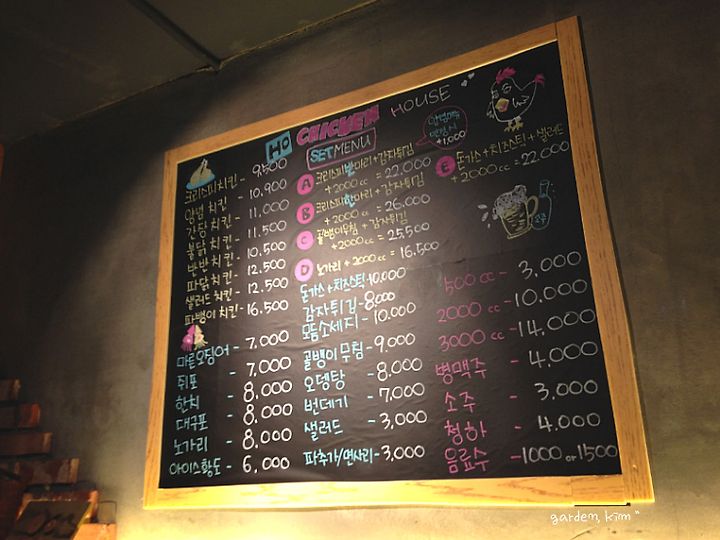 HO CHICKEN HOUSE
SETMENU
크리스피치킨 - 9,500
양념치킨 - 10,900
간장치킨 - 11,000
불닭치킨 - 11,500
반반치킨 - 10,500
파닭치킨 - 12,500
샐러드치킨 - 12,500
파뱅이치킨 - 16,500
마른오징어 - 7,000
쥐포 - 7,000
한치 - 8,000
대구포 - 8,000
노가리 - 8,000
아이스황도 - 6,000
+1,000
A 크리스피반마리 + 감자튀김
+2000cc = 22,000
B 크리스피한마리 + 감자튀김
+2000cc = 26,000
C 골뱅이무침 + 감자튀김
+2000cc = 25,500
D 노가리 + 2000cc = 16,500
E 돈가스 + 치즈스틱 + 샐러드
+2000cc = 22,000
돈가스 + 치즈스틱 - 10,000
감자튀김 - 8,000
모듬소세지 - 10,000
골뱅이무침 - 9,000
오뎅탕 - 8,000
번데기 - 7,000
샐러드 - 3,000
파추가/면사리 - 3,000
소주
500 cc - 3,000
2000 cc - 10,000
3000 cc - 14,000
병맥주 - 4,000
소주 - 3,000
청하 - 4,000
음료수 - 1000 or 1500
garden, kim"